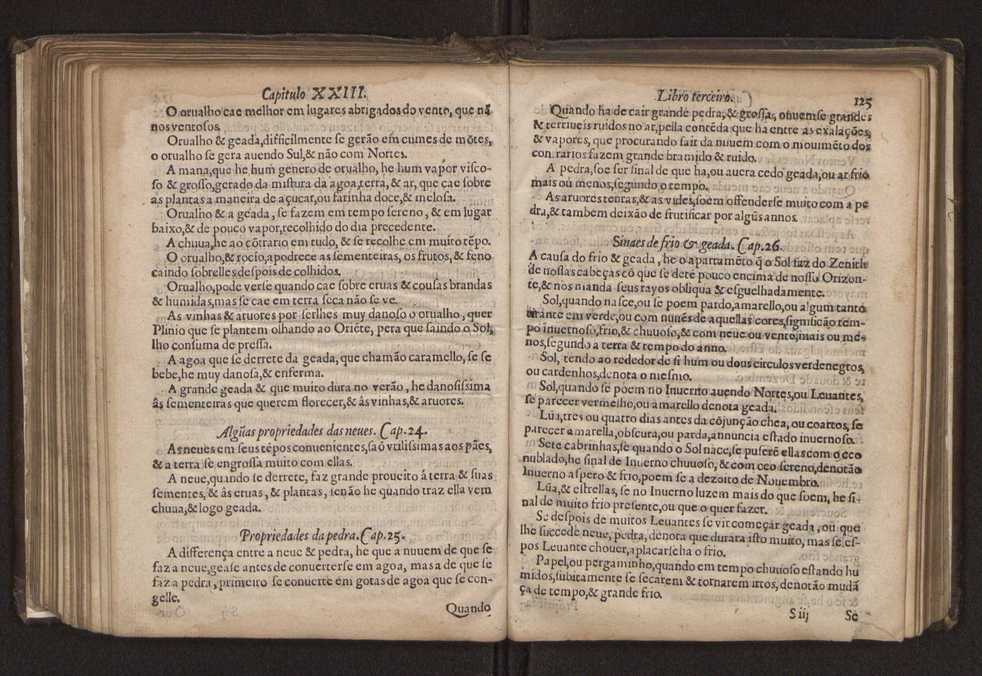 Capitulo XXIII.
O orualho cae melhor em lugares abrigados do vento, que nã
nos ventosos.
Orualho & geada, difficilmente se gerão em cumes de mõtes,
o orualho se gera auendo Sul, & não com Nortes.
A mana, que he hum genero de orualho, he hum vapor visco-
so & grosso, gerado da mistura da agoa, terra, & ar, que cae sobre
as plantas a maneira de açucar, ou farinha doce, & melosa.
Orualho & a geada, se fazem em tempo sereno, & em lugar
baixo, & de pouco vapor, recolhido do dia precedente.
A chuua, he ao cõtrario em tudo, & se recolhe em muito tẽpo.
O orualho, & rocio, apodrece as sementeiras, os frutos, & feno
caindo sobrelles despois de colhidos.
Orualho, pode verse quando cae sobre eruas & cousas brandas
& humidas, mas se cae em terra seca não se ve.
As vinhas & aruores por serlhes muy danoso o orualho, quer
Plinio que se plantem olhando ao Oriẽte, pera que saindo o Sol,
lho consuma de pressa.
A agoa que se derrete da geada, que chamão caramello, se se
bebe, he muy danosa, & enferma.
A grande geada & que muito dura no verão, he danosissima
âs sementeiras que querem florecer, & âs vinhas, & aruores.
Algũas propriedades das neues. Cap. 24.
As neues em seus tẽpos conuenientes, saõ vtilissimas aos pães,
& a terra se engrossa muito com ellas.
A neue, quando se derrete, faz grande proueito â terra & suas
sementes, & âs eruas, & plantas, senão he quando traz ella vem
chuua, & logo geada.
Propriedades da pedra. Cap. 25.
A differença entre a neue & pedra, he que a nuuem de que se
faz a neue, gease antes de conuerterse em agoa, mas a de que se
faz a pedra, primeiro se conuerte em gotas de agoa que se con-
gelle.
Quando
Libro terceiro.
125
Quando ha de cair grande pedra, & grossa, ouuemse grandes
& terriueis ruidos no ar, pella contẽda que ha entre as exalações,
& vapores, que procurando sair da nuuem com o mouimẽto dos
contrarios fazem grande bramido & ruido.
A pedra, soe ser sinal de que ha, ou auera cedo geada, ou ar frio
mais ou menos, segundo o tempo.
As aruores tenras, & as vides, soem offenderse muito com a pe
dra, & tambem deixão de frutificar por algũs annos.
Sinaes de frio & geada. Cap. 26.
A causa do frio & geada, he o apartamẽto q̃ o Sol faz do Zenith
de nossas cabeças cõ que se detẽ pouco encima de nosso Orizon-
te, & nos manda seus rayos obliqua & esguelhadamente.
Sol, quando nasce, ou se poem pardo, amarello, ou algum tanto
tirante em verde, ou com nuuẽs de aquellas cores, significão tem-
po inuernoso, frio, & chuuoso, & com neue ou vento, mais ou me-
nos, segundo a terra & tempo do anno.
Sol, tendo ao rededor de si hum ou dous circulos verdenegros,
ou cardenhos, denota o mesmo.
Sol, quando se poem no Inuerno auendo Nortes, ou Leuantes,
se parecer vermelho, ou amarello denota geada.
Lũa, tres ou quatro dias antes da cõjunção chea, ou coartos, se
parecer amarella, obscura, ou parda, annuncia estado inuernoso.
Sete cabrinhas, se quando o Sol nace, se puserẽ ellas com o ceo
nublado, he sinal de Inuerno chuuoso, & com ceo sereno, denotão
Inuerno aspero & frio, poem se a dezoito de Nouembro.
Lũa, & estrellas, se no Inuerno luzem mais do que soem, he si-
nal de muito frio presente, ou que o quer fazer.
Se despois de muitos Leuantes se vir começar geada, ou que
lhe succede neue, pedra, denota que durara isto muito, mas se es-
pos Leuante chouer, aplacarseha o frio.
Papel, ou pergaminho, quando em tempo chuuoso estando hu
midos, subitamente se secarem & tornarem irtos, denotão mudã
ça de tempo, & grande frio.
S iij
Se